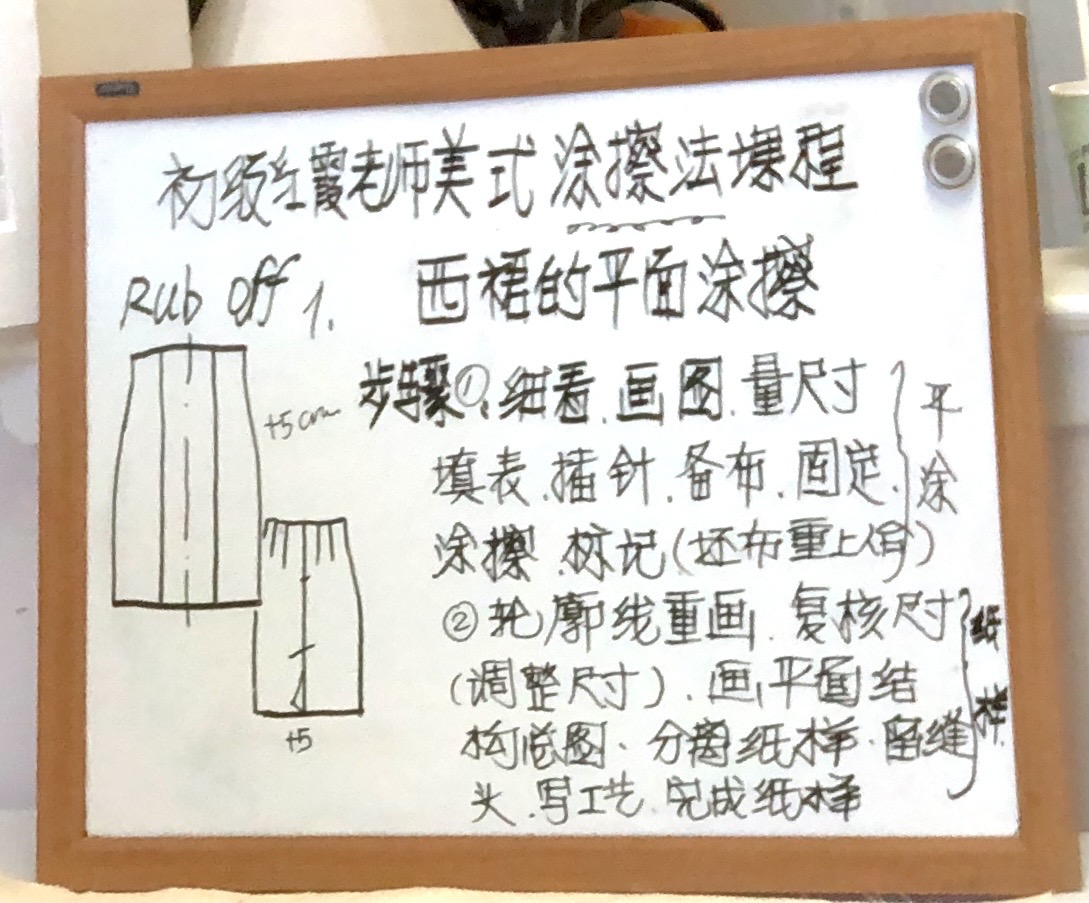 初级红霞老师美式涂擦法课程
Rub off 1. 西裙的平面涂擦
+5cm
步骤①.细看.画图.量尺寸
填表.插针.备布.固定.
涂擦.标记(坯布重上人身)
平涂
②轮廓线重画.复核尺寸
(调整尺寸).画平面结
构总图.分离纸样.留缝
头.写工艺.完成纸样
纸样.
+5